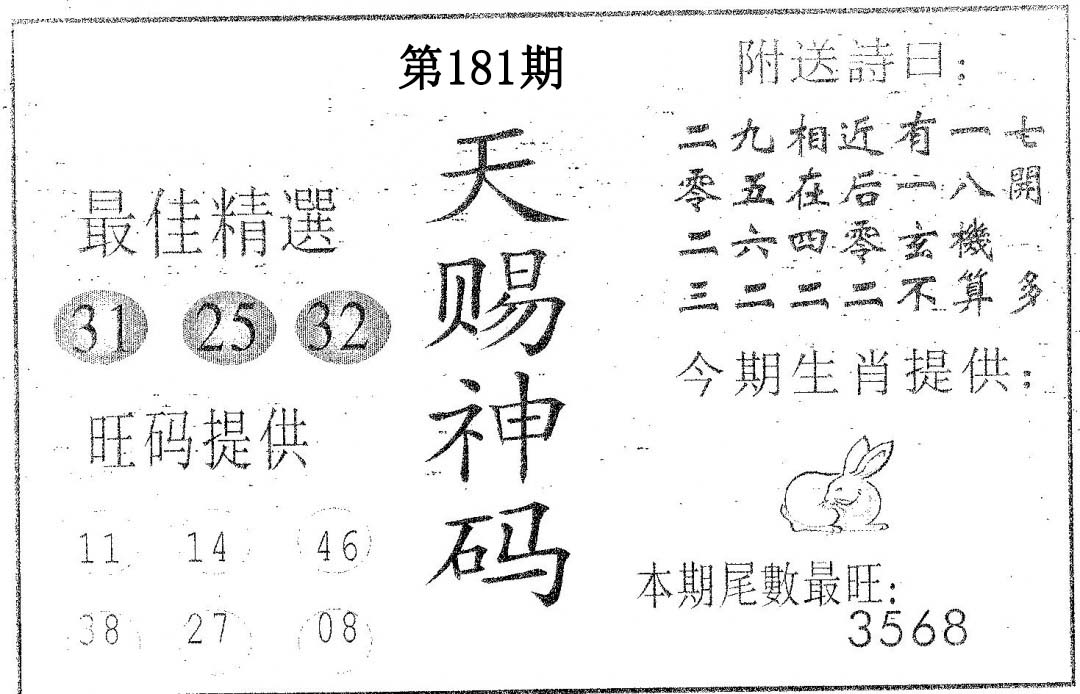 第181期
最佳精選
31 25 32
旺码提供
11 14 46
38 27 08
天赐神码
附送詩曰：
二九相近有一七
零五在后一八開
二六四零玄機
三二二二不算多
今期生肖提供：
本期尾數最旺：
3568